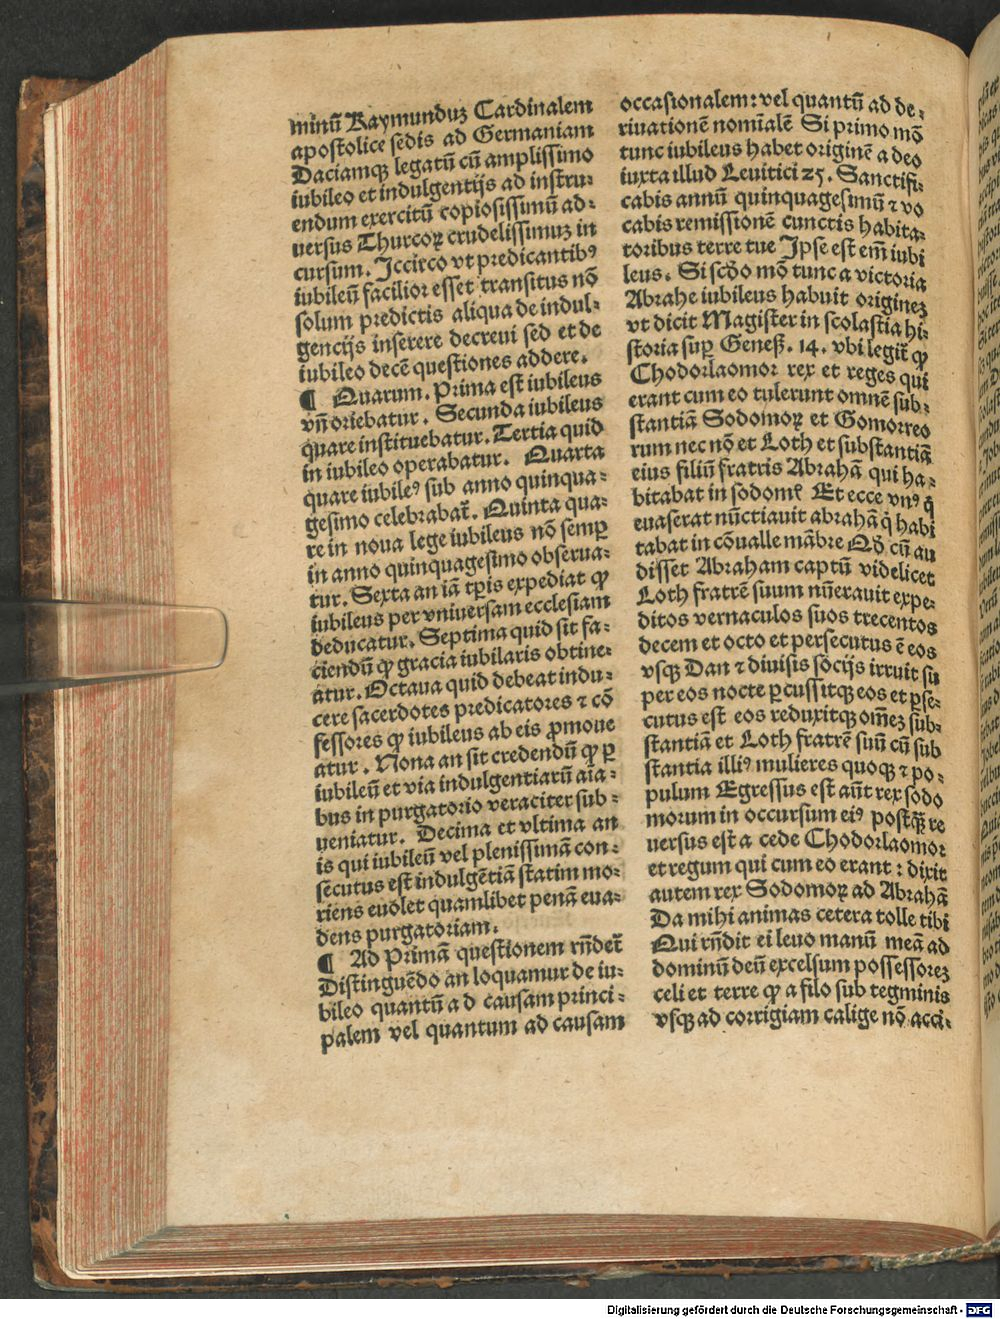 minū Raymunduꝫ Cardinalem
apostolice sedis ad Germaniam
Daciamqꝫ legatū cū amplissimo
iubileo et indulgentijs ad instru⸗
endum exercitū copiosissimū ad⸗
uersus Thurcoꝝ crudelissimuꝫ in
cursum. Iccirco vt predicantibꝰ
iubileū facilior esset transitus nō
solum predictis aliqua de indul⸗
gencijs inserere decreui sed et de
iubileo decē questiones addere.
¶ Quarum. Prima est iubileus
vn̄ oriebatur. Secunda iubileus
quare instituebatur. Tertia quid
in iubileo operabatur. Quarta
quare iubileꝰ sub anno quinqua⸗
gesimo celebrabat᷑. Quinta qua⸗
re in noua lege iubileus nō semꝑ
in anno quinquagesimo obserua⸗
tur. Sexta an iā tꝑis expediat ꝙ
iubileus per vniuersam ecclesiam
deducatur. Septima quid sit fa⸗
ciendū ꝙ gracia iubilaris obtine⸗
atur. Octaua quid debeat indu⸗
cere sacerdotes predicatores ⁊ cō
fessores ꝙ iubileus ab eis ꝓmoue
atur. Nona an sit credendū ꝙ ꝑ
iubileū et via indulgentiarū aīa⸗
bus in purgatorio veraciter sub⸗
ueniatur. Decima et vltima an
is qui iubileū vel plenissimā con⸗
secutus est indulgētiā statim mo⸗
riens euolet quamlibet penā eua⸗
dens purgatoriam.
¶ Ad Primā questionem rn̄det᷑
Distinguēdo an loquamur de iu⸗
bileo quantū ad causam princi⸗
palem vel quantum ad causam
occasionalem: vel quantū ad de⸗
riuationē nomīalē Si primo mō
tunc iubileus habet originē a deo
iuxta illud Leuitici 25. Sanctifi⸗
cabis annū quinquagesimū ⁊ vo
cabis remissionē cunctis habita⸗
toribus terre tue Ipse est em̄ iubi
leus. Si scd̄o mō tunc a victoria
Abrahe iubileus habuit origineꝫ
vt dicit Magister in scolastia hi⸗
storia suꝑ Geneß. 14. vbi legit᷑ ꝙ
Chodorlaomor rex et reges qui
erant cum eo tulerunt omnē sub⸗
stantiā Sodomoꝝ et Gomorreo
rum nec nō et Loth et substantiā
eius filiū fratris Abrahā qui ha⸗
bitabat in sodomꝭ Et ecce vnꝰ q̇
euaserat nūctiauit abrahā q̇ habi
tabat in cōualle mābre Qd̄ cū au
disset Abraham captū videlicet
Loth fratrē suum nūerauit expe⸗
ditos vernaculos suos trecentos
decem et octo et persecutus ē eos
vsqꝫ Dan ⁊ diuisis socijs irruit su
per eos nocte ꝑcussitqꝫ eos et ꝑse⸗
cutus est eos reduxitqꝫ om̄eꝫ sub⸗
stantiā et Loth fratrē suū cū sub
stantia illiꝰ mulieres quoqꝫ ⁊ po⸗
pulum Egressus est aūt rex sodo
morum in occursum eiꝰ postqꝫ̄ re
uersus est a cede Chodorlaomor
et regum qui cum eo erant: dixit
autem rex Sodomoꝝ ad Abrahā
Da mihi animas cetera tolle tibi
Qui rn̄dit ei leuo manū meā ad
dominū deū excelsum possessoreꝫ
celi et terre ꝙ a filo sub tegminis
vsqꝫ ad corrigiam calige nō acci⸗
Digitalisierung gefördert durch die Deutsche Forschungsgemeinschaft - DFG